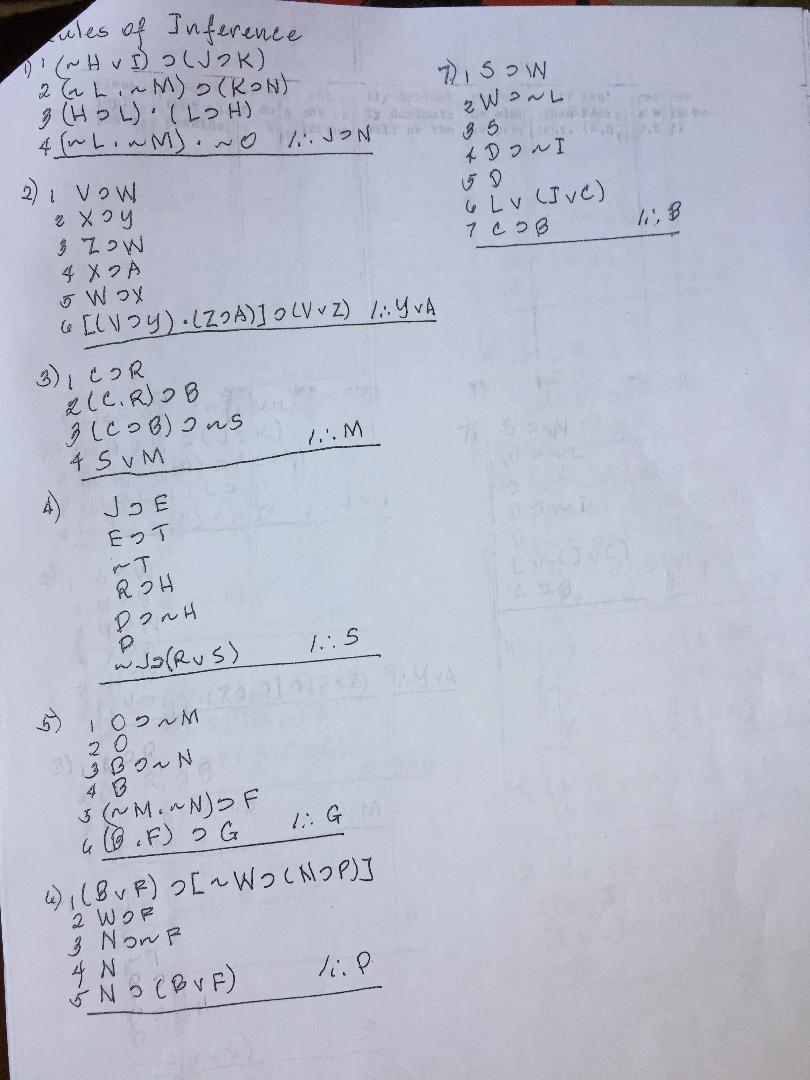 Rules of Inference
1) 1 (~H v I) ⊃ (J ⊃ K)
2 (~L . ~M) ⊃ (K ⊃ N)
3 (H ⊃ L) · (L ⊃ H)
4 (~L . ~M) · ~O /∴ J ⊃ N
2) 1 V ⊃ W
2 X ⊃ Y
3 Z ⊃ W
4 X ⊃ A
5 W ⊃ X
6 [(V ⊃ Y) · (Z ⊃ A)] ⊃ (V v Z) /∴ Y v A
3) 1 C ⊃ R
2 (C . R) ⊃ B
3 (C ⊃ B) ⊃ ~S
4 S v M /∴ M
4) J ⊃ E
E ⊃ T
~T
R ⊃ H
D ⊃ ~H
D
~J ⊃ (R v S) /∴ S
5) 1 O ⊃ ~M
2 O
3 B ⊃ ~N
4 B
5 (~M . ~N) ⊃ F
6 (B . F) ⊃ G /∴ G
6) 1 (B v F) ⊃ [~W ⊃ (N ⊃ P)]
2 W ⊃ F
3 N ⊃ ~F
4 N
5 N ⊃ (B v F) /∴ P
7) 1 S ⊃ W
2 W ⊃ ~L
3 S
4 D ⊃ ~I
5 D
6 L v (I v C)
7 C ⊃ B /∴ B